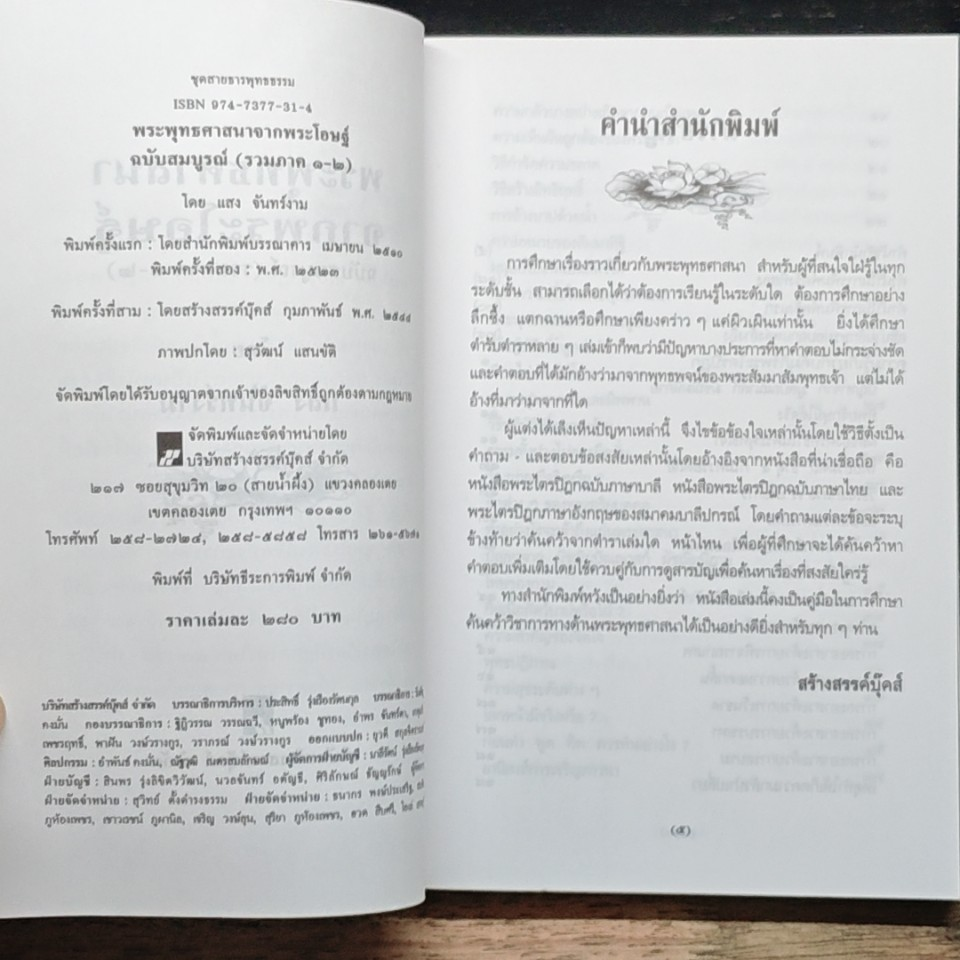 ชุดสายธารพุทธธรรม
ISBN 974-7377-31-4
พระพุทธศาสนาจากพระโอษฐ์
ฉบับสมบูรณ์ (รวมภาค ๑-๒)
โดย แสง จันทร์งาม
พิมพ์ครั้งแรก : โดยสำนักพิมพ์บรรณาคาร เมษายน ๒๕๑๐
พิมพ์ครั้งที่สอง : พ.ศ. ๒๕๒๓
พิมพ์ครั้งที่สาม : โดยสร้างสรรค์บุ๊คส์ กุมภาพันธ์ พ.ศ. ๒๕๔๔
ภาพปกโดย : สุวัฒน์ แสนขัติ
จัดพิมพ์โดยได้รับอนุญาตจากเจ้าของลิขสิทธิ์ถูกต้องตามกฎหมาย
จัดพิมพ์และจัดจำหน่ายโดย
บริษัทสร้างสรรค์บุ๊คส์ จำกัด
๒๑๗ ซอยสุขุมวิท ๒๐ (สายน้ำผึ้ง) แขวงคลองเตย
เขตคลองเตย กรุงเทพฯ ๑๐๑๑๐
โทรศัพท์ ๒๕๘-๒๗๒๔, ๒๕๘-๕๘๕๘ โทรสาร ๒๖๑-
พิมพ์ที่ บริษัทธีระการพิมพ์ จำกัด
ราคาเล่มละ ๒๘๐ บาท
บริษัทสร้างสรรค์บุ๊คส์ จำกัด บรรณาธิการบริหาร : ประสิทธิ์ รุ่งเรืองรัตนกุล บรรณาธิการ :
คงมั่น กองบรรณาธิการ : ฐิฏิวรรณ วรรณฉวี, หนูพร้อง ชูทอง, อำพร จันทร์ดา,
เพชรฤทธิ์, พาฝัน วงษ์วรางกูร, วราภรณ์ วงษ์วรางกูร ออกแบบปก : ยุวดี
ศิลปกรรม : อำพันธ์ คงมั่น, ณัฐวุฒิ เนตรสนลักษณ์ ผู้จัดการฝ่ายบัญชี : มาลีรัตน์
ฝ่ายบัญชี : สินพร รุ่งลิขิตวิวัฒน์, นวลจันทร์ อดัญชี, ศิริลักษณ์ ธัญญรักษ์
ฝ่ายจัดจำหน่าย : สุวิทย์ ตั้งดำรงธรรม ฝ่ายจัดจำหน่าย : ธนากร พงษ์ประเสริฐ,
ภูห้องเพชร, เชาวเลขน์ ภูผานิล, เจริญ วงษ์สูน, สุริยา ภูห้องเพชร,
คำนำสำนักพิมพ์
การศึกษาเรื่องราวเกี่ยวกับพระพุทธศาสนา สำหรับผู้ที่สนใจใฝ่รู้ในทุก
ระดับชั้น สามารถเลือกได้ว่าต้องการเรียนรู้ในระดับใด ต้องการศึกษาอย่าง
ลึกซึ้ง แตกฉานหรือศึกษาเพียงคร่าว ๆ แค่ผิวเผินเท่านั้น ยิ่งได้ศึกษา
ตำรับตำราหลาย ๆ เล่มเข้าก็พบว่ามีปัญหาบางประการที่หาคำตอบไม่กระจ่างชัด
และคำตอบที่ได้มักอ้างว่ามาจากพุทธพจน์ของพระสัมมาสัมพุทธเจ้า แต่ไม่ได้
อ้างที่มาว่ามาจากที่ใด
ผู้แต่งได้เล็งเห็นปัญหาเหล่านี้ จึงไขข้อข้องใจเหล่านั้นโดยใช้วิธีตั้งเป็น
คำถาม - และตอบข้อสงสัยเหล่านั้นโดยอ้างอิงจากหนังสือที่น่าเชื่อถือ คือ
หนังสือพระไตรปิฎกฉบับภาษาบาลี หนังสือพระไตรปิฎกฉบับภาษาไทย และ
พระไตรปิฎกภาษาอังกฤษของสมาคมบาลีปกรณ์ โดยคำถามแต่ละข้อจะระบุ
ข้างท้ายว่าค้นคว้าจากตำราเล่มใด หน้าไหน เพื่อผู้ที่ศึกษาจะได้ค้นคว้าหา
คำตอบเพิ่มเติมโดยใช้ควบคู่กับการดูสารบัญเพื่อค้นหาเรื่องที่สงสัยใคร่รู้
ทางสำนักพิมพ์หวังเป็นอย่างยิ่งว่า หนังสือเล่มนี้คงเป็นคู่มือในการศึกษา
ค้นคว้าวิชาการทางด้านพระพุทธศาสนาได้เป็นอย่างดียิ่งสำหรับทุก ๆ ท่าน
สร้างสรรค์บุ๊คส์
(๕)